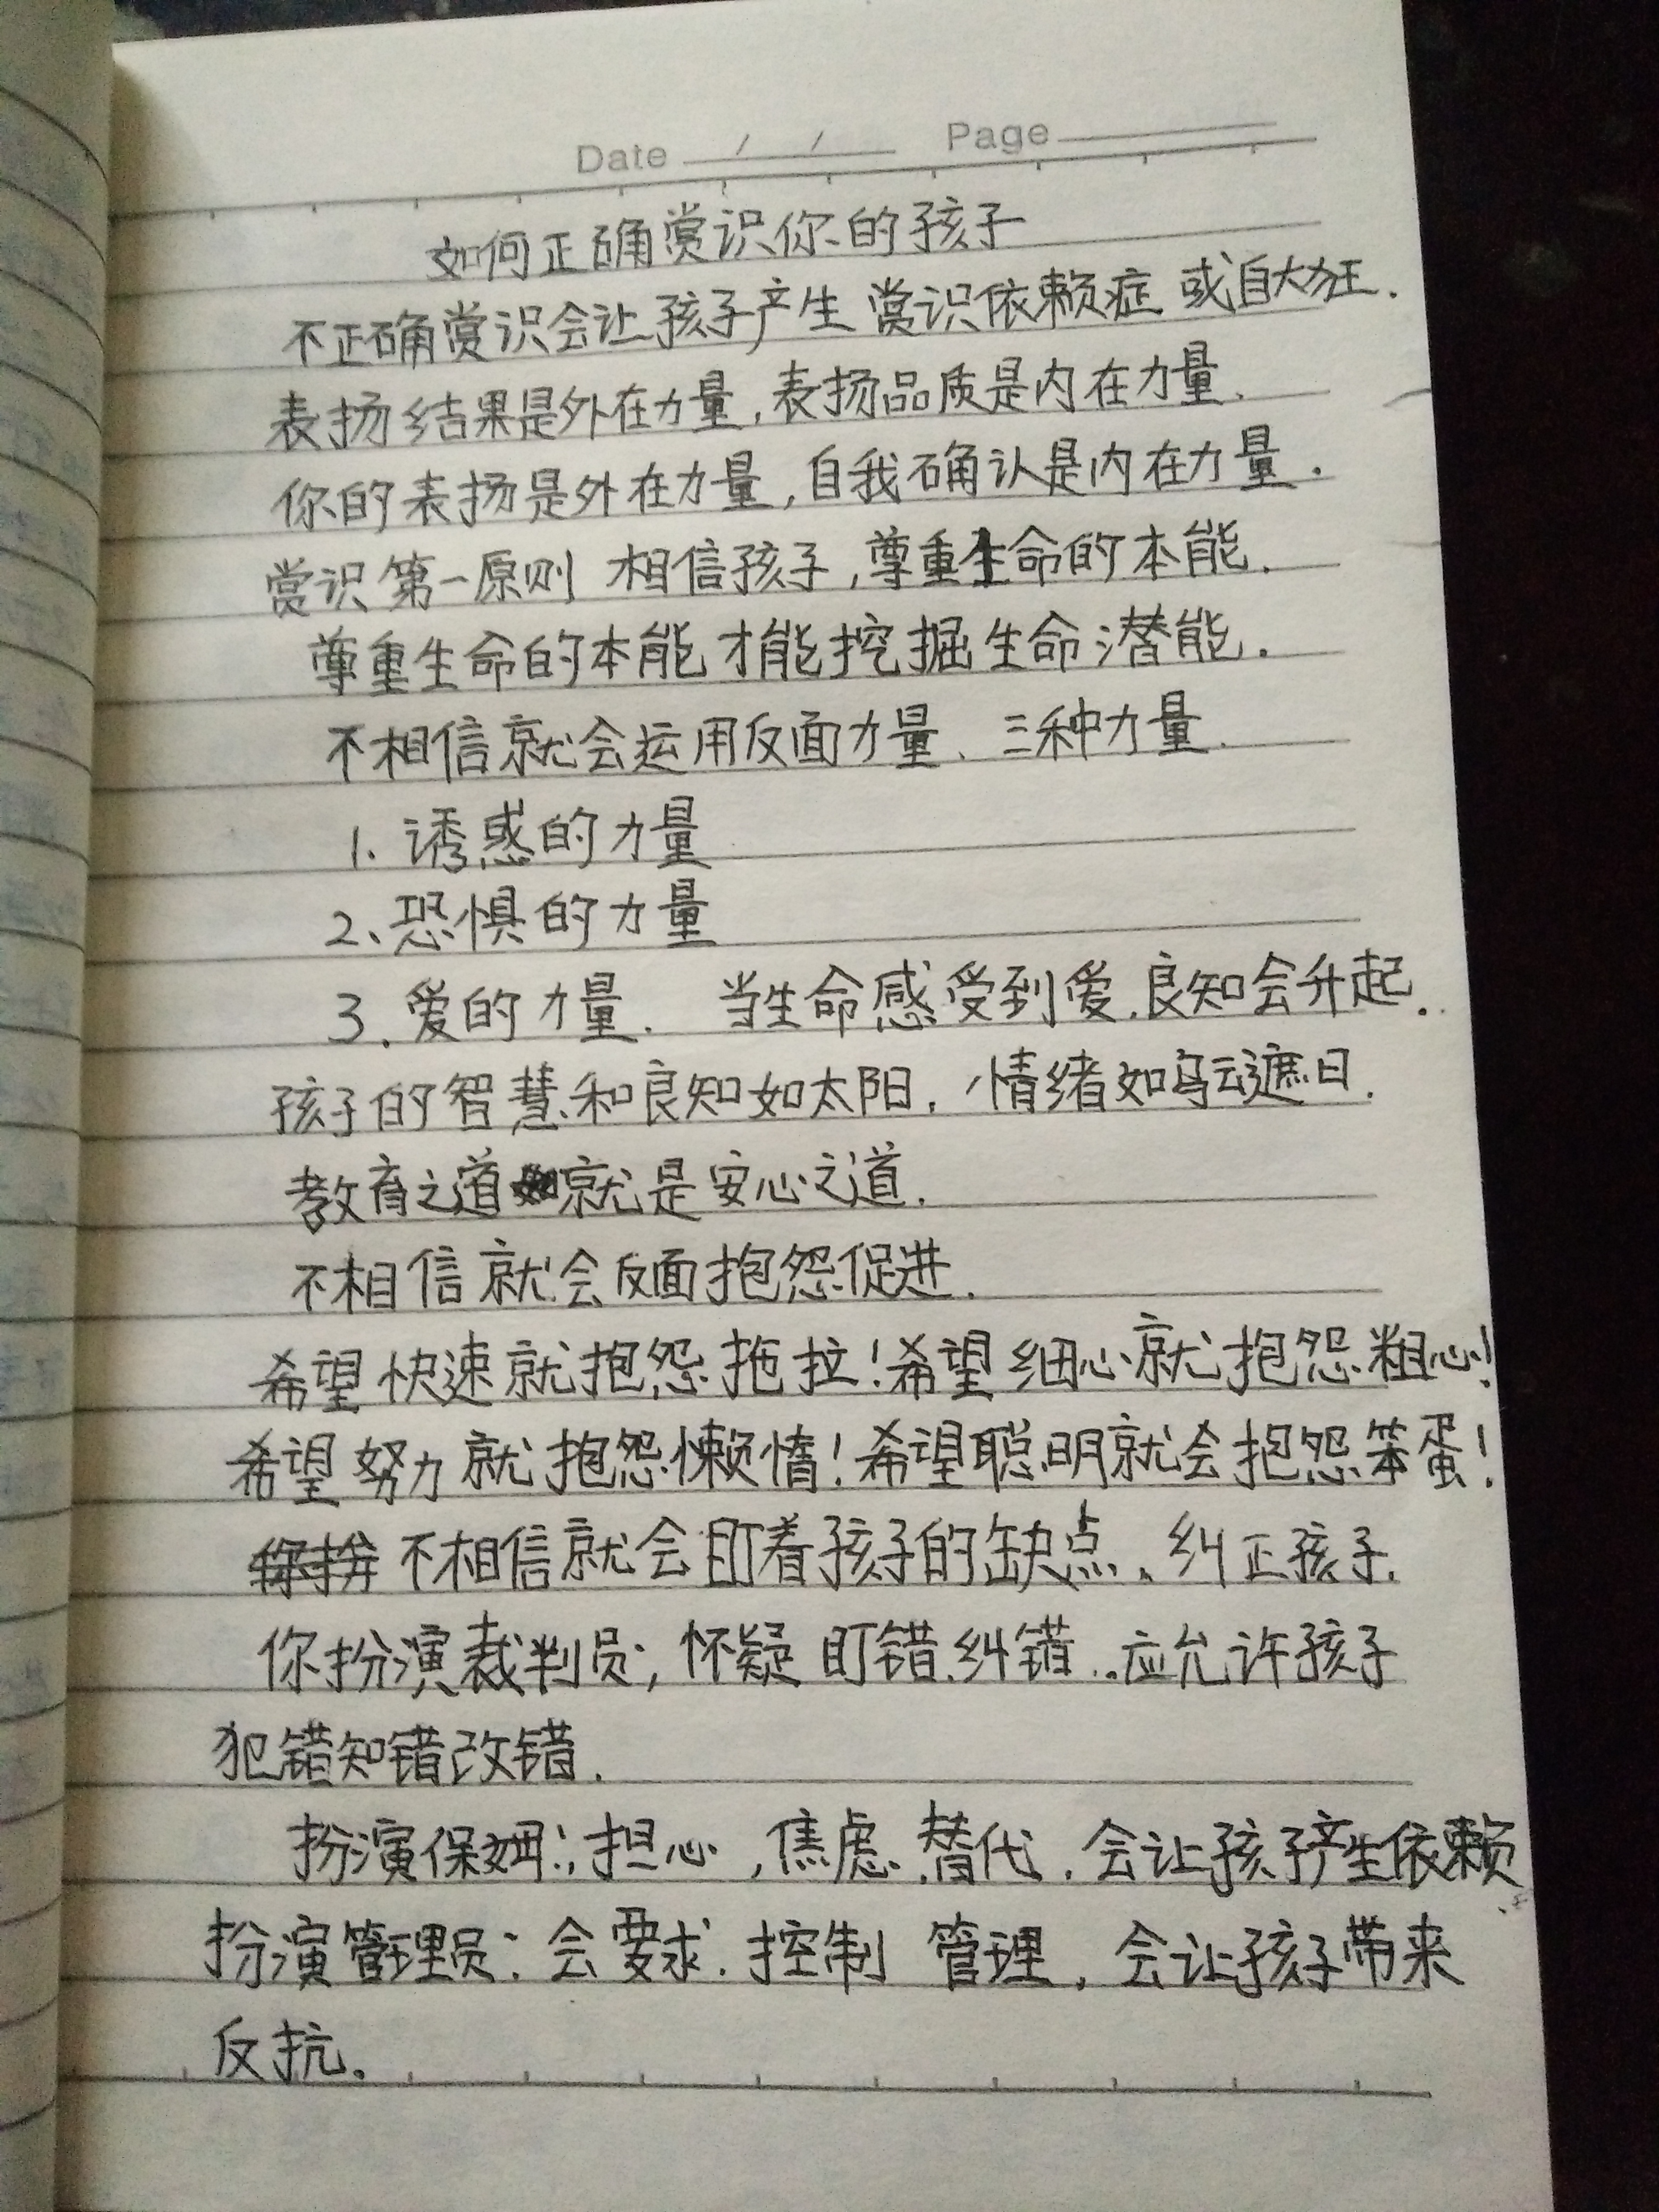 Date / / Page
如何正确赏识你的孩子
不正确赏识会让孩子产生赏识依赖症 或自大狂.
表扬结果是外在力量,表扬品质是内在力量.
你的表扬是外在力量,自我确认是内在力量.
赏识第一原则 相信孩子,尊重生命的本能.
尊重生命的本能才能挖掘生命潜能.
不相信就会运用反面力量、三种力量.
1. 诱惑的力量
2、恐惧的力量
3. 爱的力量. 当生命感受到爱.良知会升起.
孩子的智慧和良知如太阳, 情绪如乌云遮日.
教育之道就是安心之道.
不相信就会反面抱怨促进.
希望快速就抱怨拖拉!希望细心就抱怨粗心!
希望努力就抱怨懒惰!希望聪明就会抱怨笨蛋!
不相信就会盯着孩子的缺点、纠正孩子.
你扮演裁判员; 怀疑 盯错.纠错..应允许孩子
犯错知错改错.
扮演保姆:,担心,焦虑.替代.会让孩子产生依赖
扮演管理员:会要求.控制 管理,会让孩子带来
反抗。